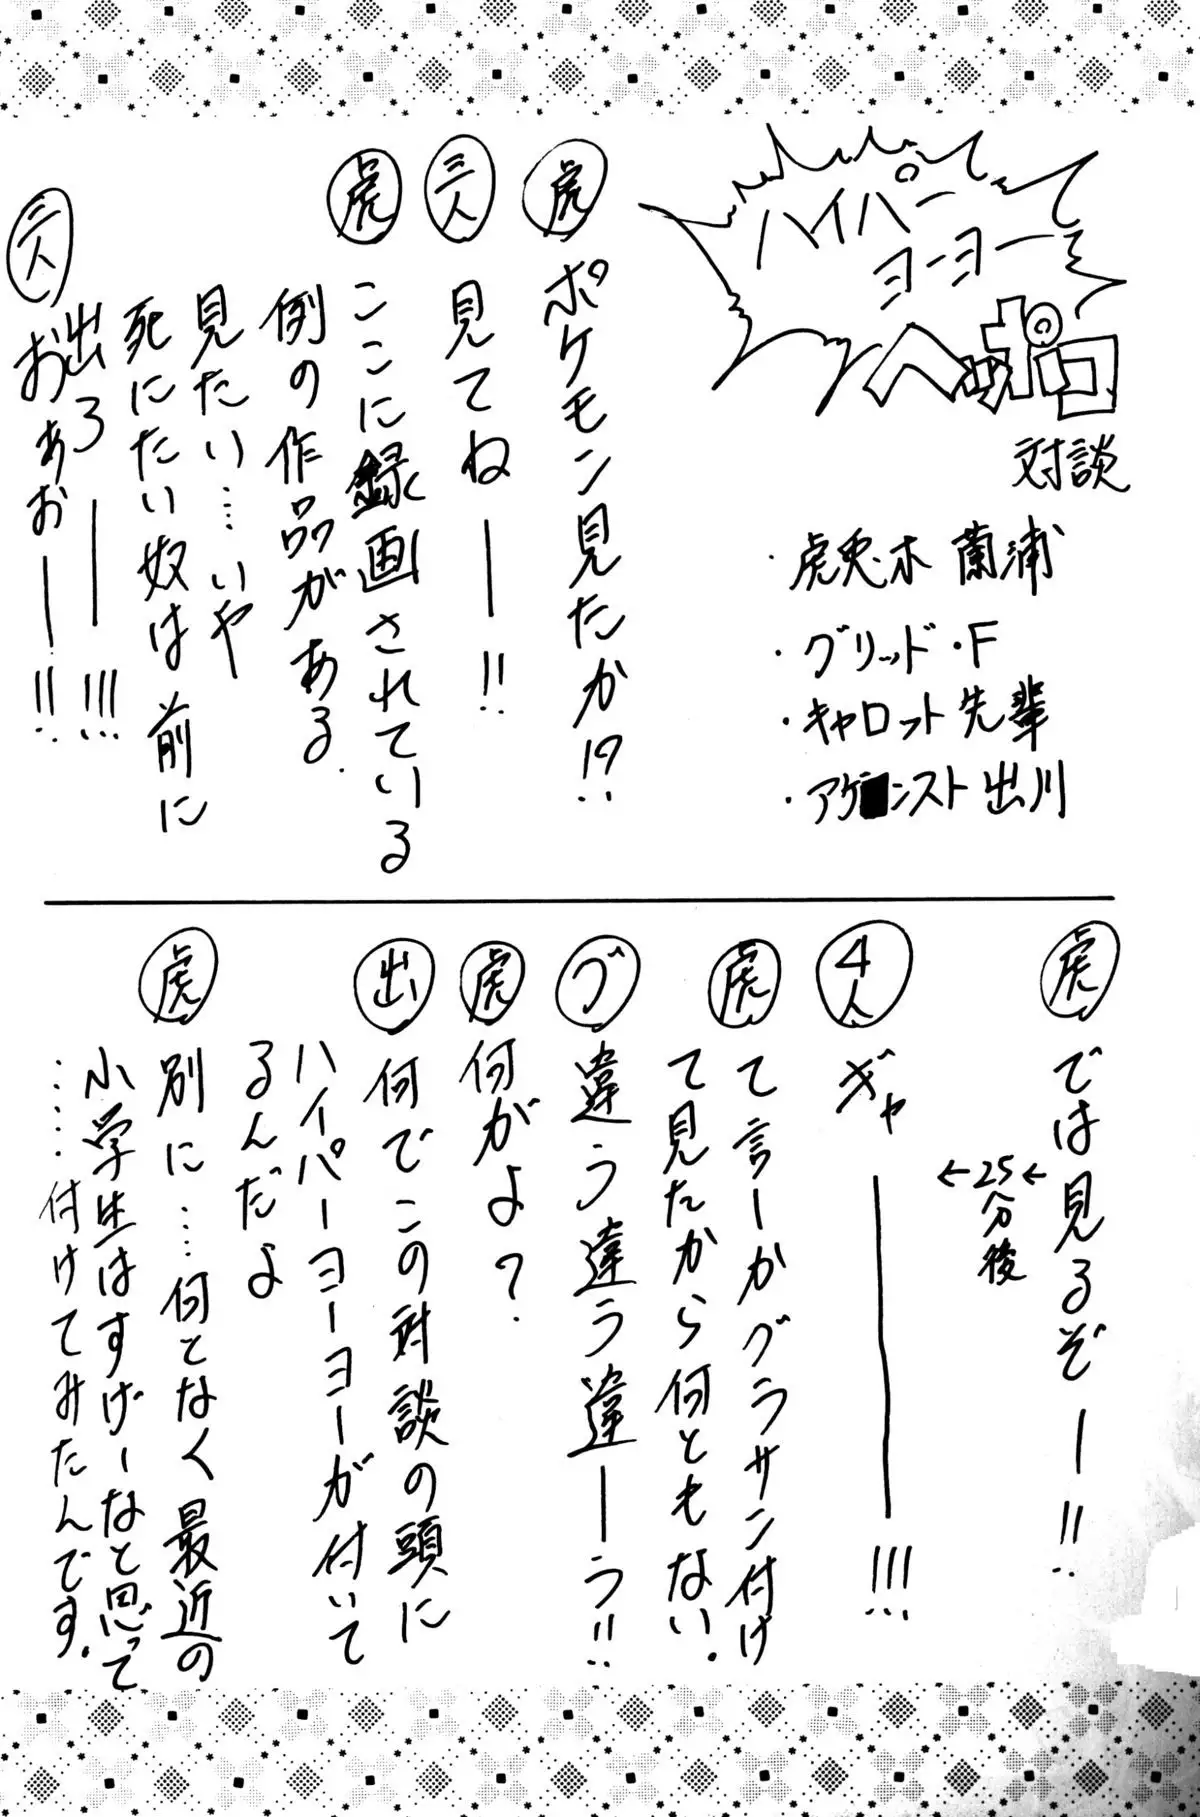 ハイパー
ヨーヨー
へっポコ
対談
・虎兎木 蘭浦
・グリッド・F
・キャロット先輩
・アゲ■ンスト出川
虎 ポケモン見たか!?
三人 見てねーー!!
虎 ここに録画されている
例の作品がある.
見たい……いや
死にたい奴は前に
出ろーー!!!
三人 おぉおーー!!
虎 では見るぞー!!
←25分後←
4人 ギャーー!!!
虎 て言ーかグラサン付け
て見たから何ともない.
グ 違う違う違ーう!!
虎 何がよ?
出 何でこの対談の頭に
ハイパーヨーヨーが付いて
るんだよ
虎 別に……何となく最近の
小学生はすげーなと思って
……付けてみたんです.